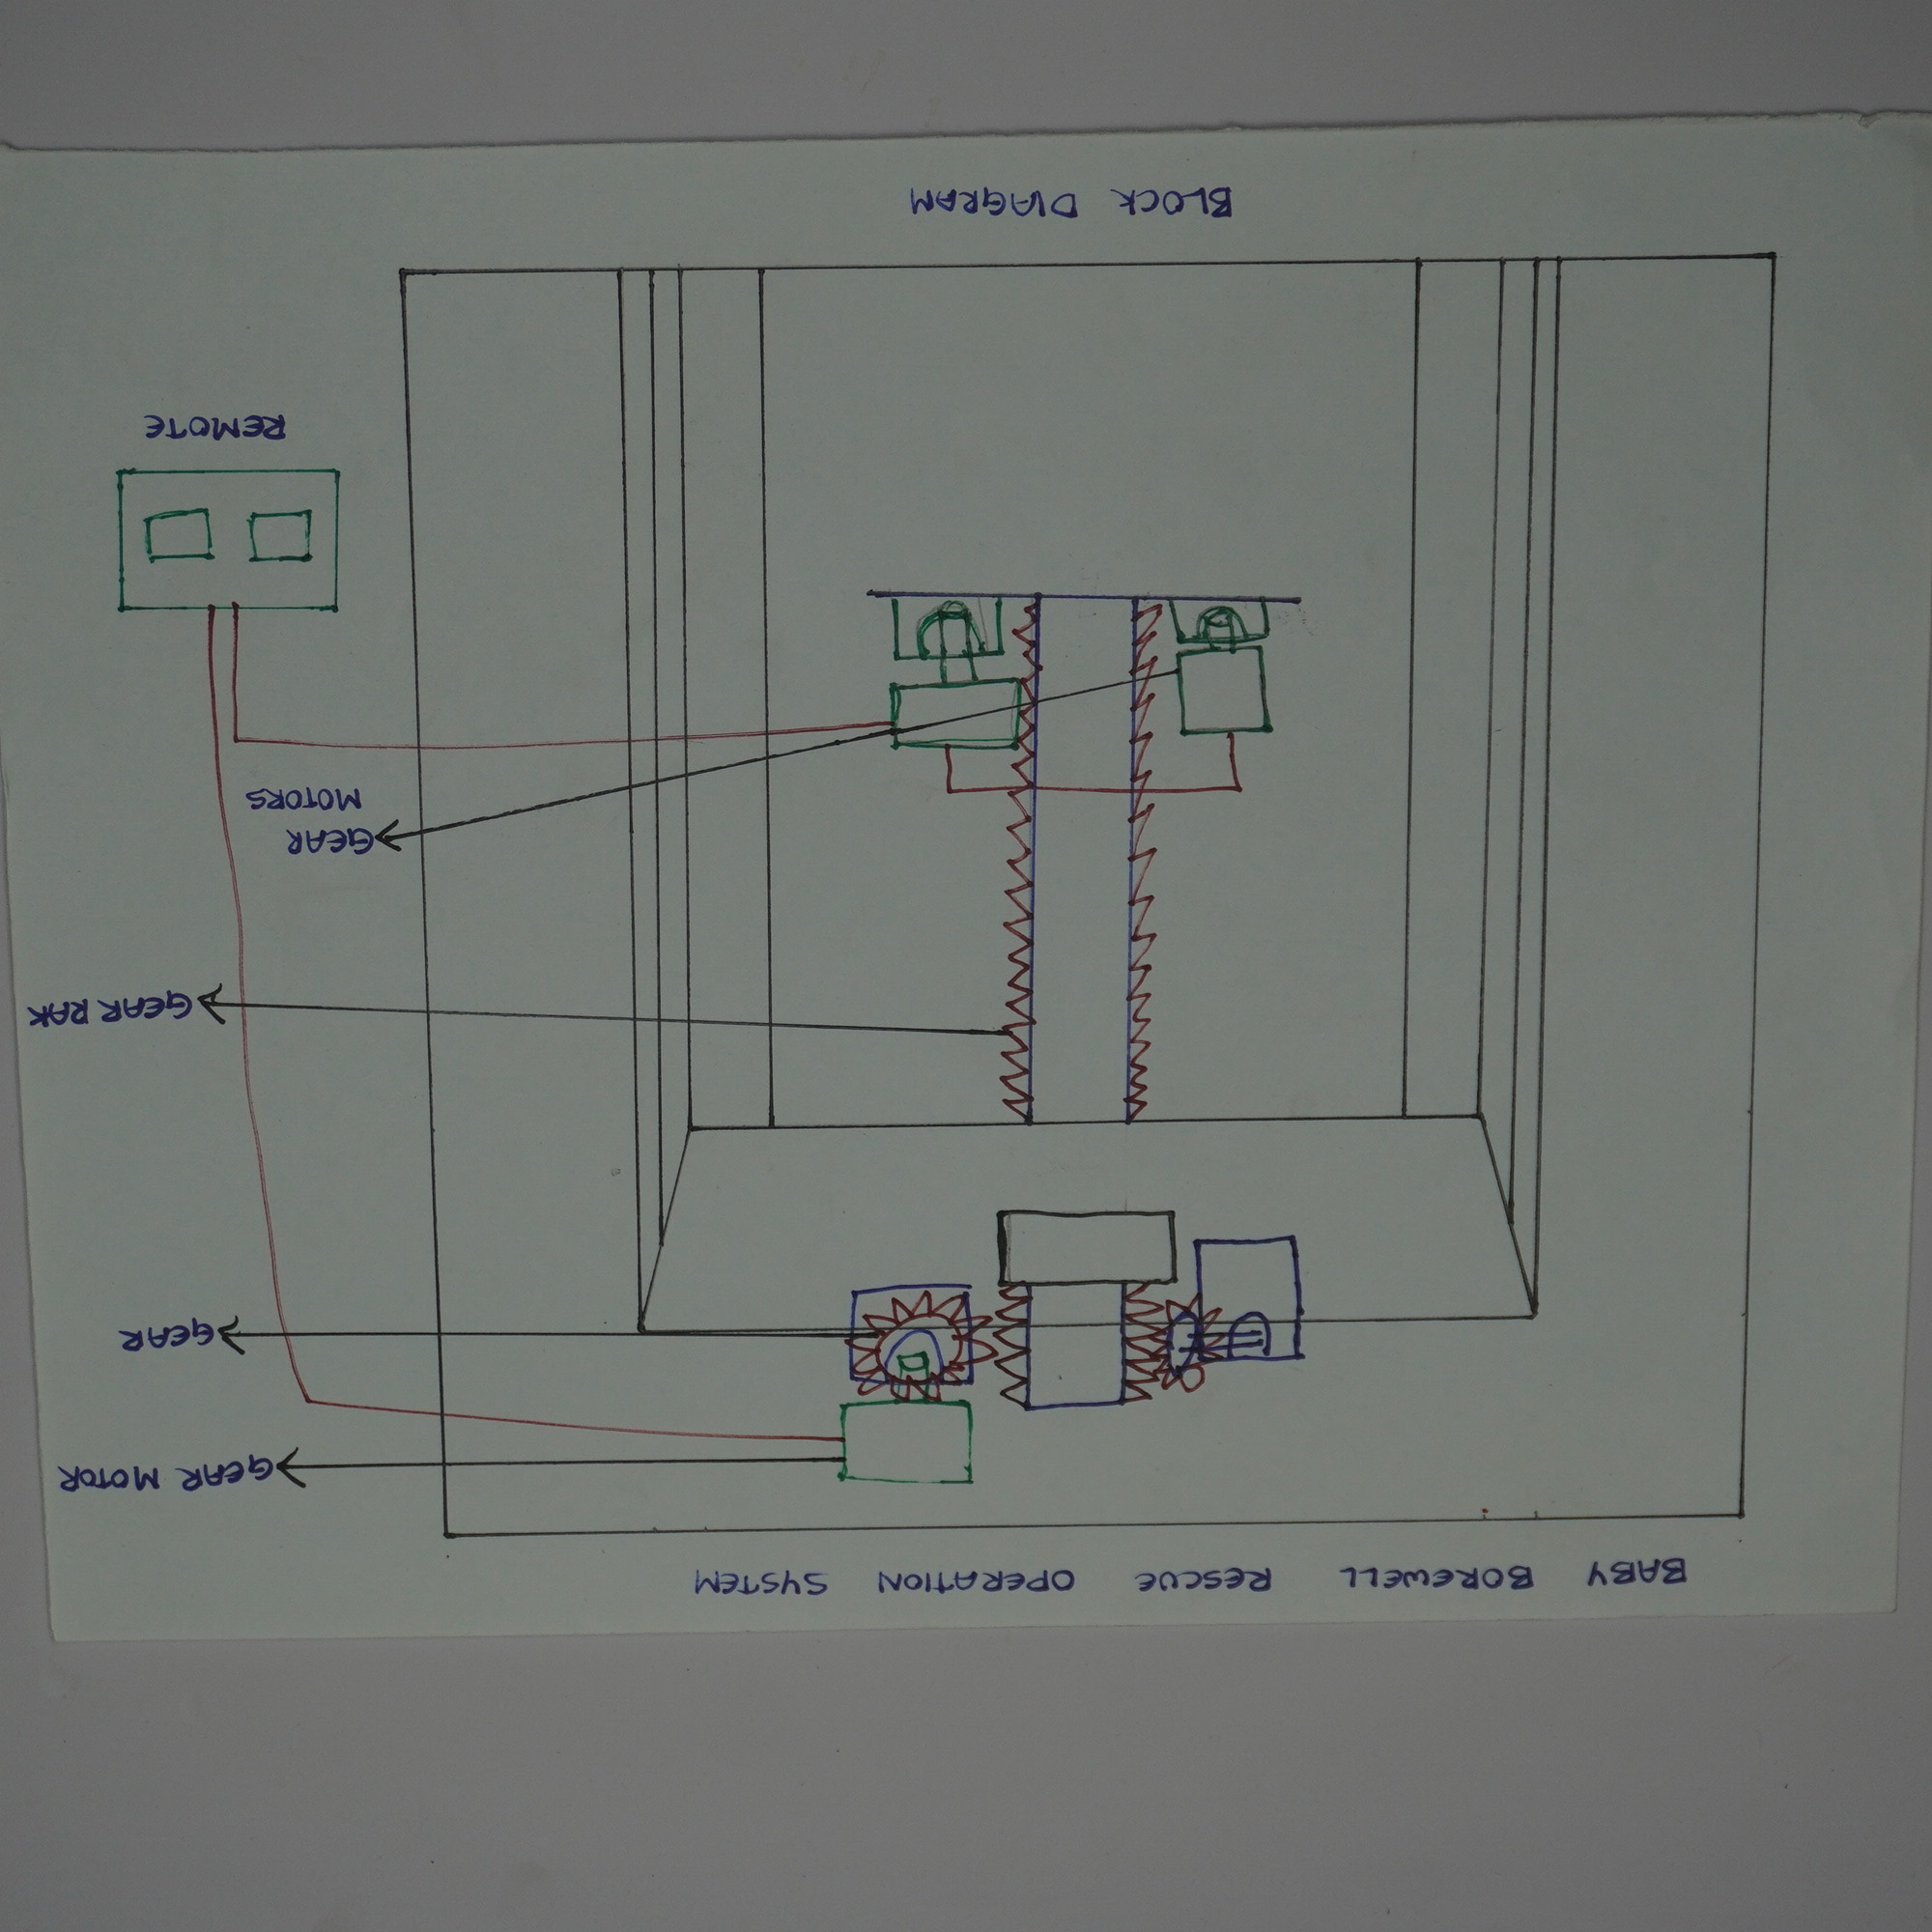 BABY BOREWELL RESCUE OPERATION SYSTEM
GEAR MOTOR
GEAR
GEAR RAK
GEAR
MOTORS
REMOTE
BLOCK DIAGRAM